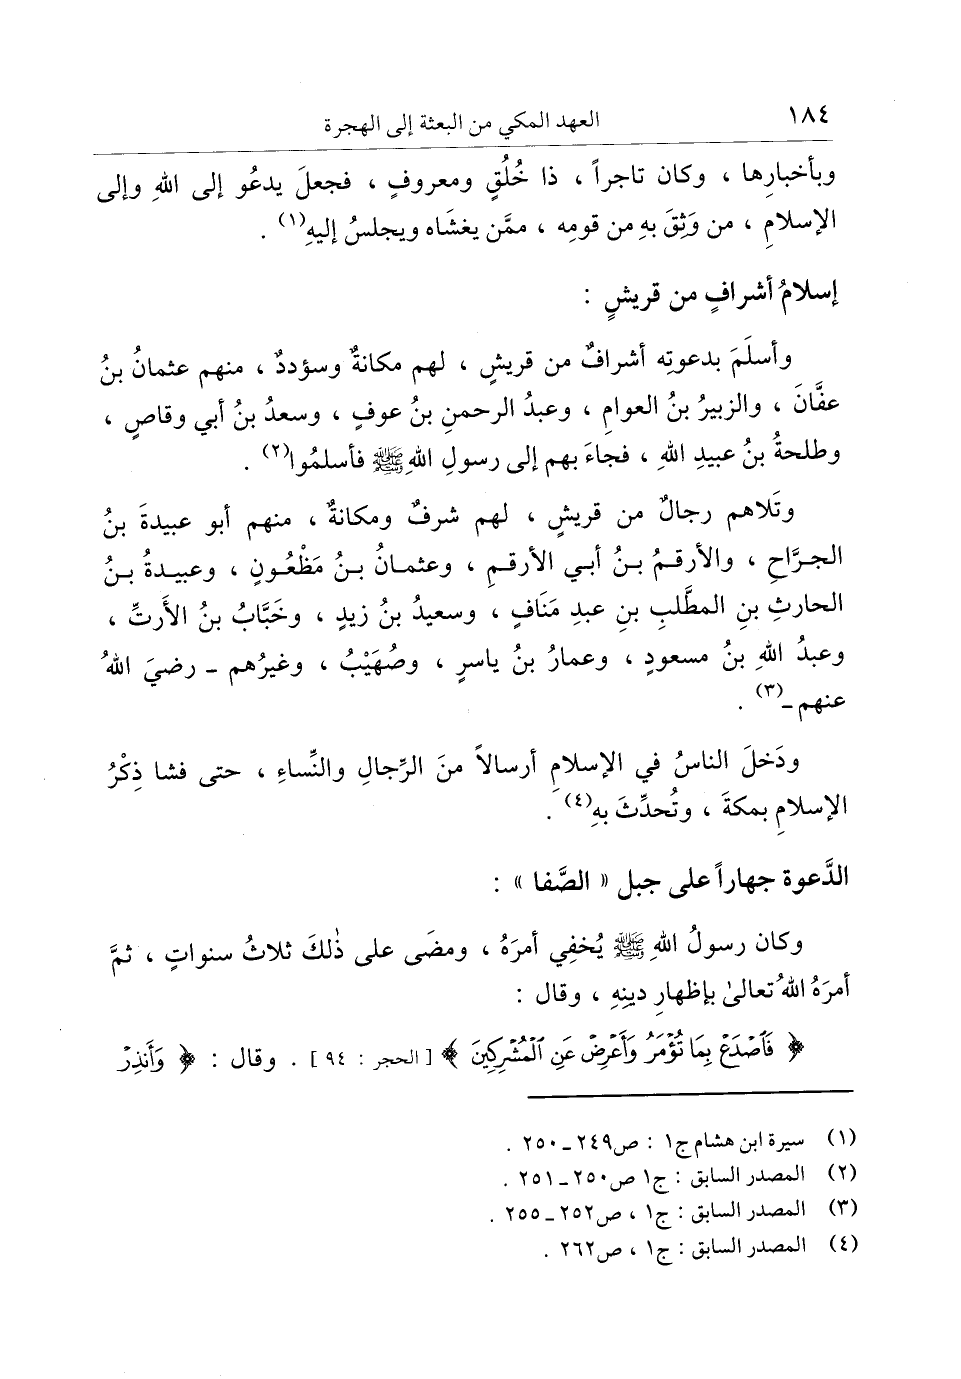 ١٨٤
العهد المكي من البعثة إلى الهجرة
وبأخبارِها ، وكان تاجراً ، ذا خُلُقٍ ومعروفٍ ، فجعلَ يدعُو إلى اللهِ وإلى
الإسلامِ ، من وَثِقَ بهِ من قومِه ، ممَّن يغشَاه ويجلسُ إليهِ(١) .
إسلامُ أشرافٍ من قريشٍ :
وأسلَمَ بدعوتِه أشرافٌ من قريشٍ ، لهم مكانةٌ وسؤددٌ ، منهم عثمانُ بنُ
عفَّانَ ، والزبيرُ بنُ العوامِ ، وعبدُ الرحمنِ بنُ عوفٍ ، وسعدُ بنُ أبي وقاصٍ ،
وطلحةُ بنُ عبيدِ اللهِ ، فجاءَ بهم إلى رسولِ اللهِ ﷺ فأسلمُوا(٢) .
وتَلاهم رجالٌ من قريشٍ ، لهم شرفٌ ومكانةٌ ، منهم أبو عبيدةَ بنُ
الجرَّاحِ ، والأرقمُ بنُ أبي الأرقمِ ، وعثمانُ بنُ مَظْعُونٍ ، وعبيدةُ بنُ
الحارثِ بنِ المطَّلبِ بنِ عبدِ مَنَافٍ ، وسعيدُ بنُ زيدٍ ، وخَبَّابُ بنُ الأَرتِّ ،
وعبدُ اللهِ بنُ مسعودٍ ، وعمارُ بنُ ياسرٍ ، وصُهَيْبُ ، وغيرُهم ـ رضيَ اللهُ
عنهم ـ(٣) .
ودَخلَ الناسُ في الإسلامِ أرسالاً منَ الرِّجالِ والنِّساءِ ، حتى فشا ذِكْرُ
الإسلامِ بمكةَ ، وتُحدِّثَ بهِ(٤) .
الدَّعوة جهاراً على جبل « الصَّفا » :
وكان رسولُ اللهِ ﷺ يُخفِي أمرَهُ ، ومضَى على ذٰلكَ ثلاثُ سنواتٍ ، ثمَّ
أمرَهُ اللهُ تعالىٰ بإظهارِ دينِهِ ، وقال :
﴿ فَٱصْدَعْ بِمَا تُؤْمَرُ وَأَعْرِضْ عَنِ ٱلْمُشْرِكِينَ ﴾ [ الحجر : ٩٤ ] . وقال : ﴿ وَأَنذِرْ
(١) سيرة ابن هشام ج١ : ص٢٤٩ ـ ٢٥٠ .
(٢) المصدر السابق : ج١ ص٢٥٠ ـ ٢٥١ .
(٣) المصدر السابق : ج١ ، ص٢٥٢ ـ ٢٥٥ .
(٤) المصدر السابق : ج١ ، ص٢٦٢ .